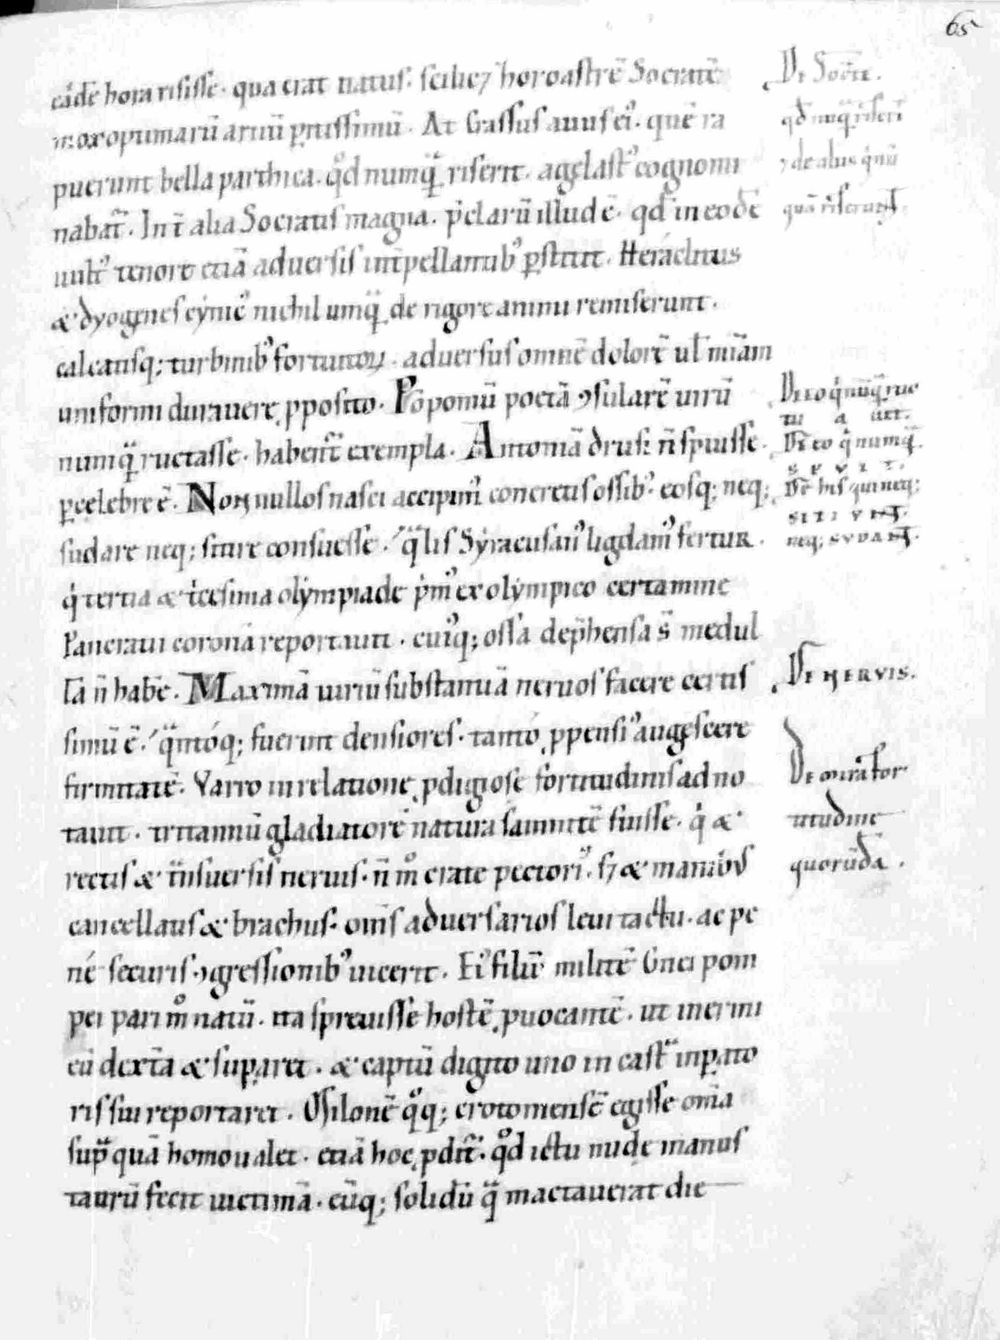 65
eadē hora risisse · qua erat natus · scilic⁊ horoastrē Socratē
mox optimarū artiū p̱itissimū · At Crassus auus ei᷒ · quē ra
puerunt bella parthica · qd numq̄ riserit · agelast᷒ cognomi
nabat᷑ · In t̄ alia Socratis magna · p̄clarū illud ē · qd in eodē
uult᷒ tenore etiā aduersis int̄pellantib᷒ p̱stitit · Heraclitus
& dyogenes cynic᷒ nichil umq̄ de rigore animi remiserunt ·
calcatisq; turbinib᷒ fortuitoꝝ · aduersus omnē dolorē ul̄ mīam
uniformi durauere ꝓposito · Pōponiū poetā ꝯsularē uirū
numq̄ ructasse · habent᷑ exempla · Antoniā drusi n̄ spuisse ·
p̱celebre ē · Non nullos nasci accipim᷒ concretis ossib᷒ · eosq; neq;
sudare neq; sitire consuesse · q̄lis Syracusan᷒ ligdam᷒ fertur ·
q̇ tertia & tⁱcesima olympiade pⁱm᷒ ex olympico certamine
Pancratii coronā reportauit · cui᷒q; ossa dep̄hensa s̄ medul
lā n̄ habē · Maximā uiriū substantiā neruos facere certis
simū ē · q̄ntoq; fuerint densiores · tanto ꝓpensi᷒ augescere
firmitatē · Varro in relatione ꝓdigiose fortitudinis adno
tauit · tritannū gladiatorē natura samnitē fuisse · q̇ &
rectis & t̄nsuersis neruis · n̄ m̊ crate pectoris · s⁊ & manibus
cancellatis & brachiis · om̄s aduersarios leui tactu · ac pe
ne securis ꝯgressionib᷒ uicerit · Ei᷒ filiū militē Cnei pom
pei pari m̊ natū · ita spreuisse hostē ꝓuocantē · ut inermi
eū dext̄a & sup̱aret · & captū digito uno in castᵃ inp̱ato
ris sui reportaret · Milonē q̊q; crotoniensē egisse om̄ia
supᵃ quā homo ualet · etiā hoc ꝓdit᷑ · qd ictu nude manus
taurū fecit uictimā · eūq; solidū qᵃ mactauerat die
De Socrte ·
qd nuq̄ riserit
⁊ de aliis
De eo q̇ nuq̄ ruc
De eo q̇ numq̄
De his qui neq;
sitiunt
neq; sudant ·
De neruis ·
De mira for
titudine
quorūda ·